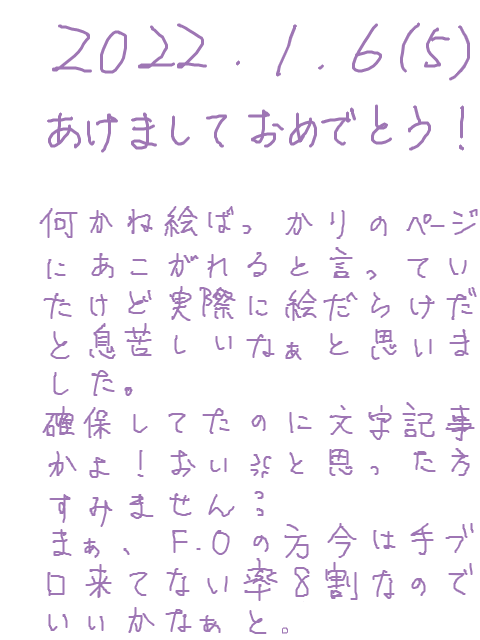 2022.1.6(5)
あけましておめでとう!
何かね絵ばっかりのページ
にあこがれると言ってい
たけど実際に絵だらけだ
と息苦しいなぁと思いま
した。
確保してたのに文字記事
かよ!おい※と思った方
すみません
まぁ、F.Oの方今は手ブ
ロ来てない率8割なので
いいかなぁと。